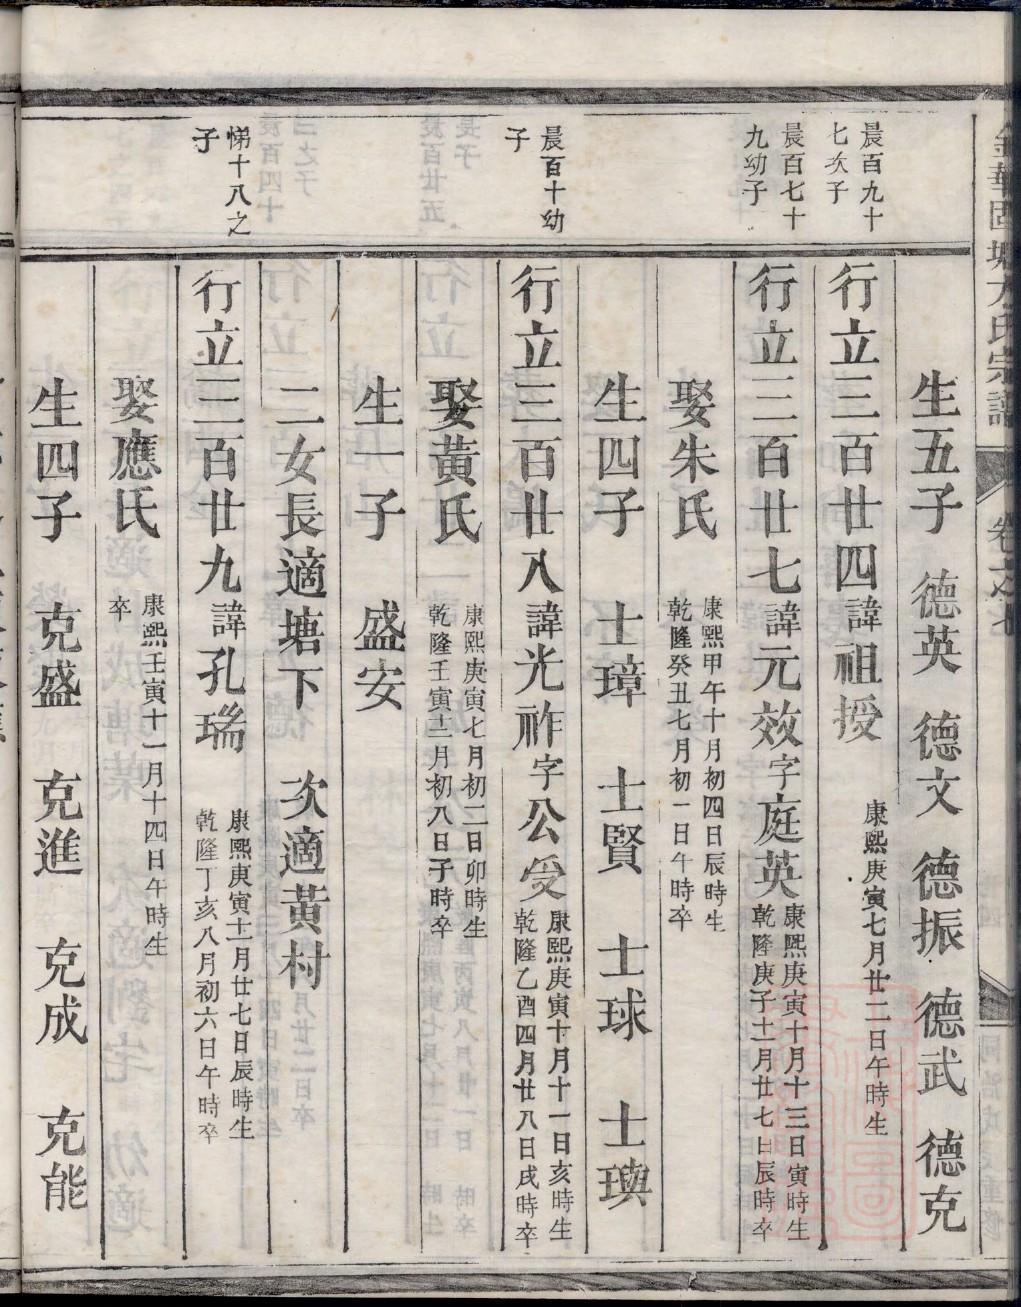 金華囬塘方氏宗譜 卷之七
生五子 德英 德文 德振 德武 德克
晨百九十七次子
行立三百廿四諱祖授 康熙庚寅七月廿二日午時生
晨百七十九幼子
行立三百廿七諱元效字庭英 康熙庚寅十月十三日寅時生
乾隆庚子十二月廿七日辰時卒
娶朱氏 康熙甲午十月初四日辰時生
乾隆癸丑七月初一日午時卒
生四子 士璋 士賢 士球 士璵
晨百十幼子
行立三百廿八諱光祚字公受 康熙庚寅十月十一日亥時生
乾隆乙酉四月廿八日戌時卒
娶黃氏 康熙庚寅七月初二日卯時生
乾隆壬寅十二月初八日子時卒
生一子 盛安
二女長適塘下 次適黃村
悌十八之子
行立三百廿九諱孔瑞 康熙庚寅十二月廿七日辰時生
乾隆丁亥八月初六日午時卒
娶應氏 康熙壬寅十一月十四日午時生
卒
生四子 克盛 克進 克成 克能